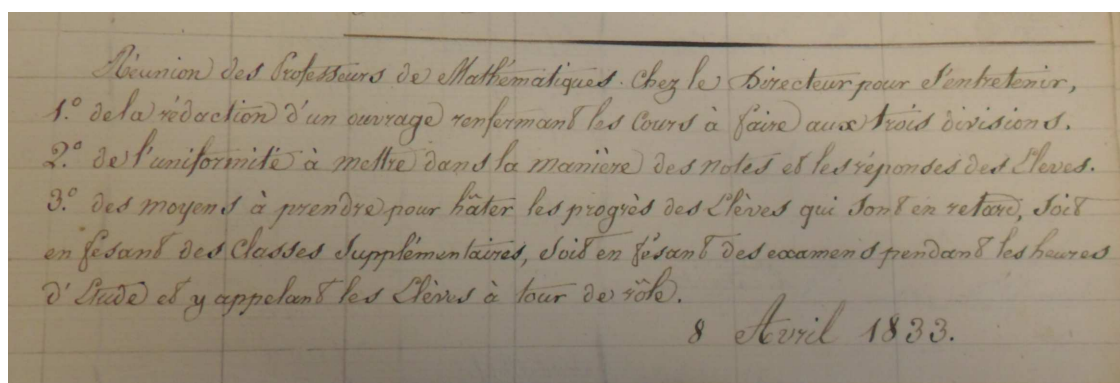 Réunion des Professeurs de Mathématiques chez le Directeur pour s'entretenir,
1.º de la rédaction d'un ouvrage renfermant les cours à faire aux trois divisions.
2.º de l'uniformité à mettre dans la manière des notes et les réponses des Elèves.
3.º des moyens à prendre pour hâter les progrès des Elèves qui sont en retard, soit
en fésant des classes supplémentaires, soit en fésant des examens pendant les heures
d'Etude et y appelant les Elèves à tour de rôle.
8 Avril 1833.